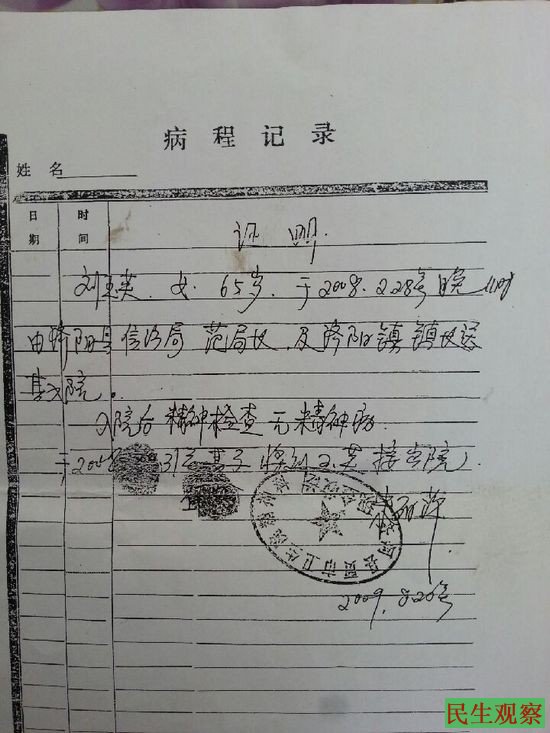 病 程 记 录
姓 名
日期
时间
证 明
刘玉英、女、65岁、于2008.2.28号晚
由济阳县信访局 范局长 及济阳镇镇长送
其入院。
入院后精神检查无精神病.
于2008 31号其子将刘玉英接出院.
2009.8.26号
民生观察